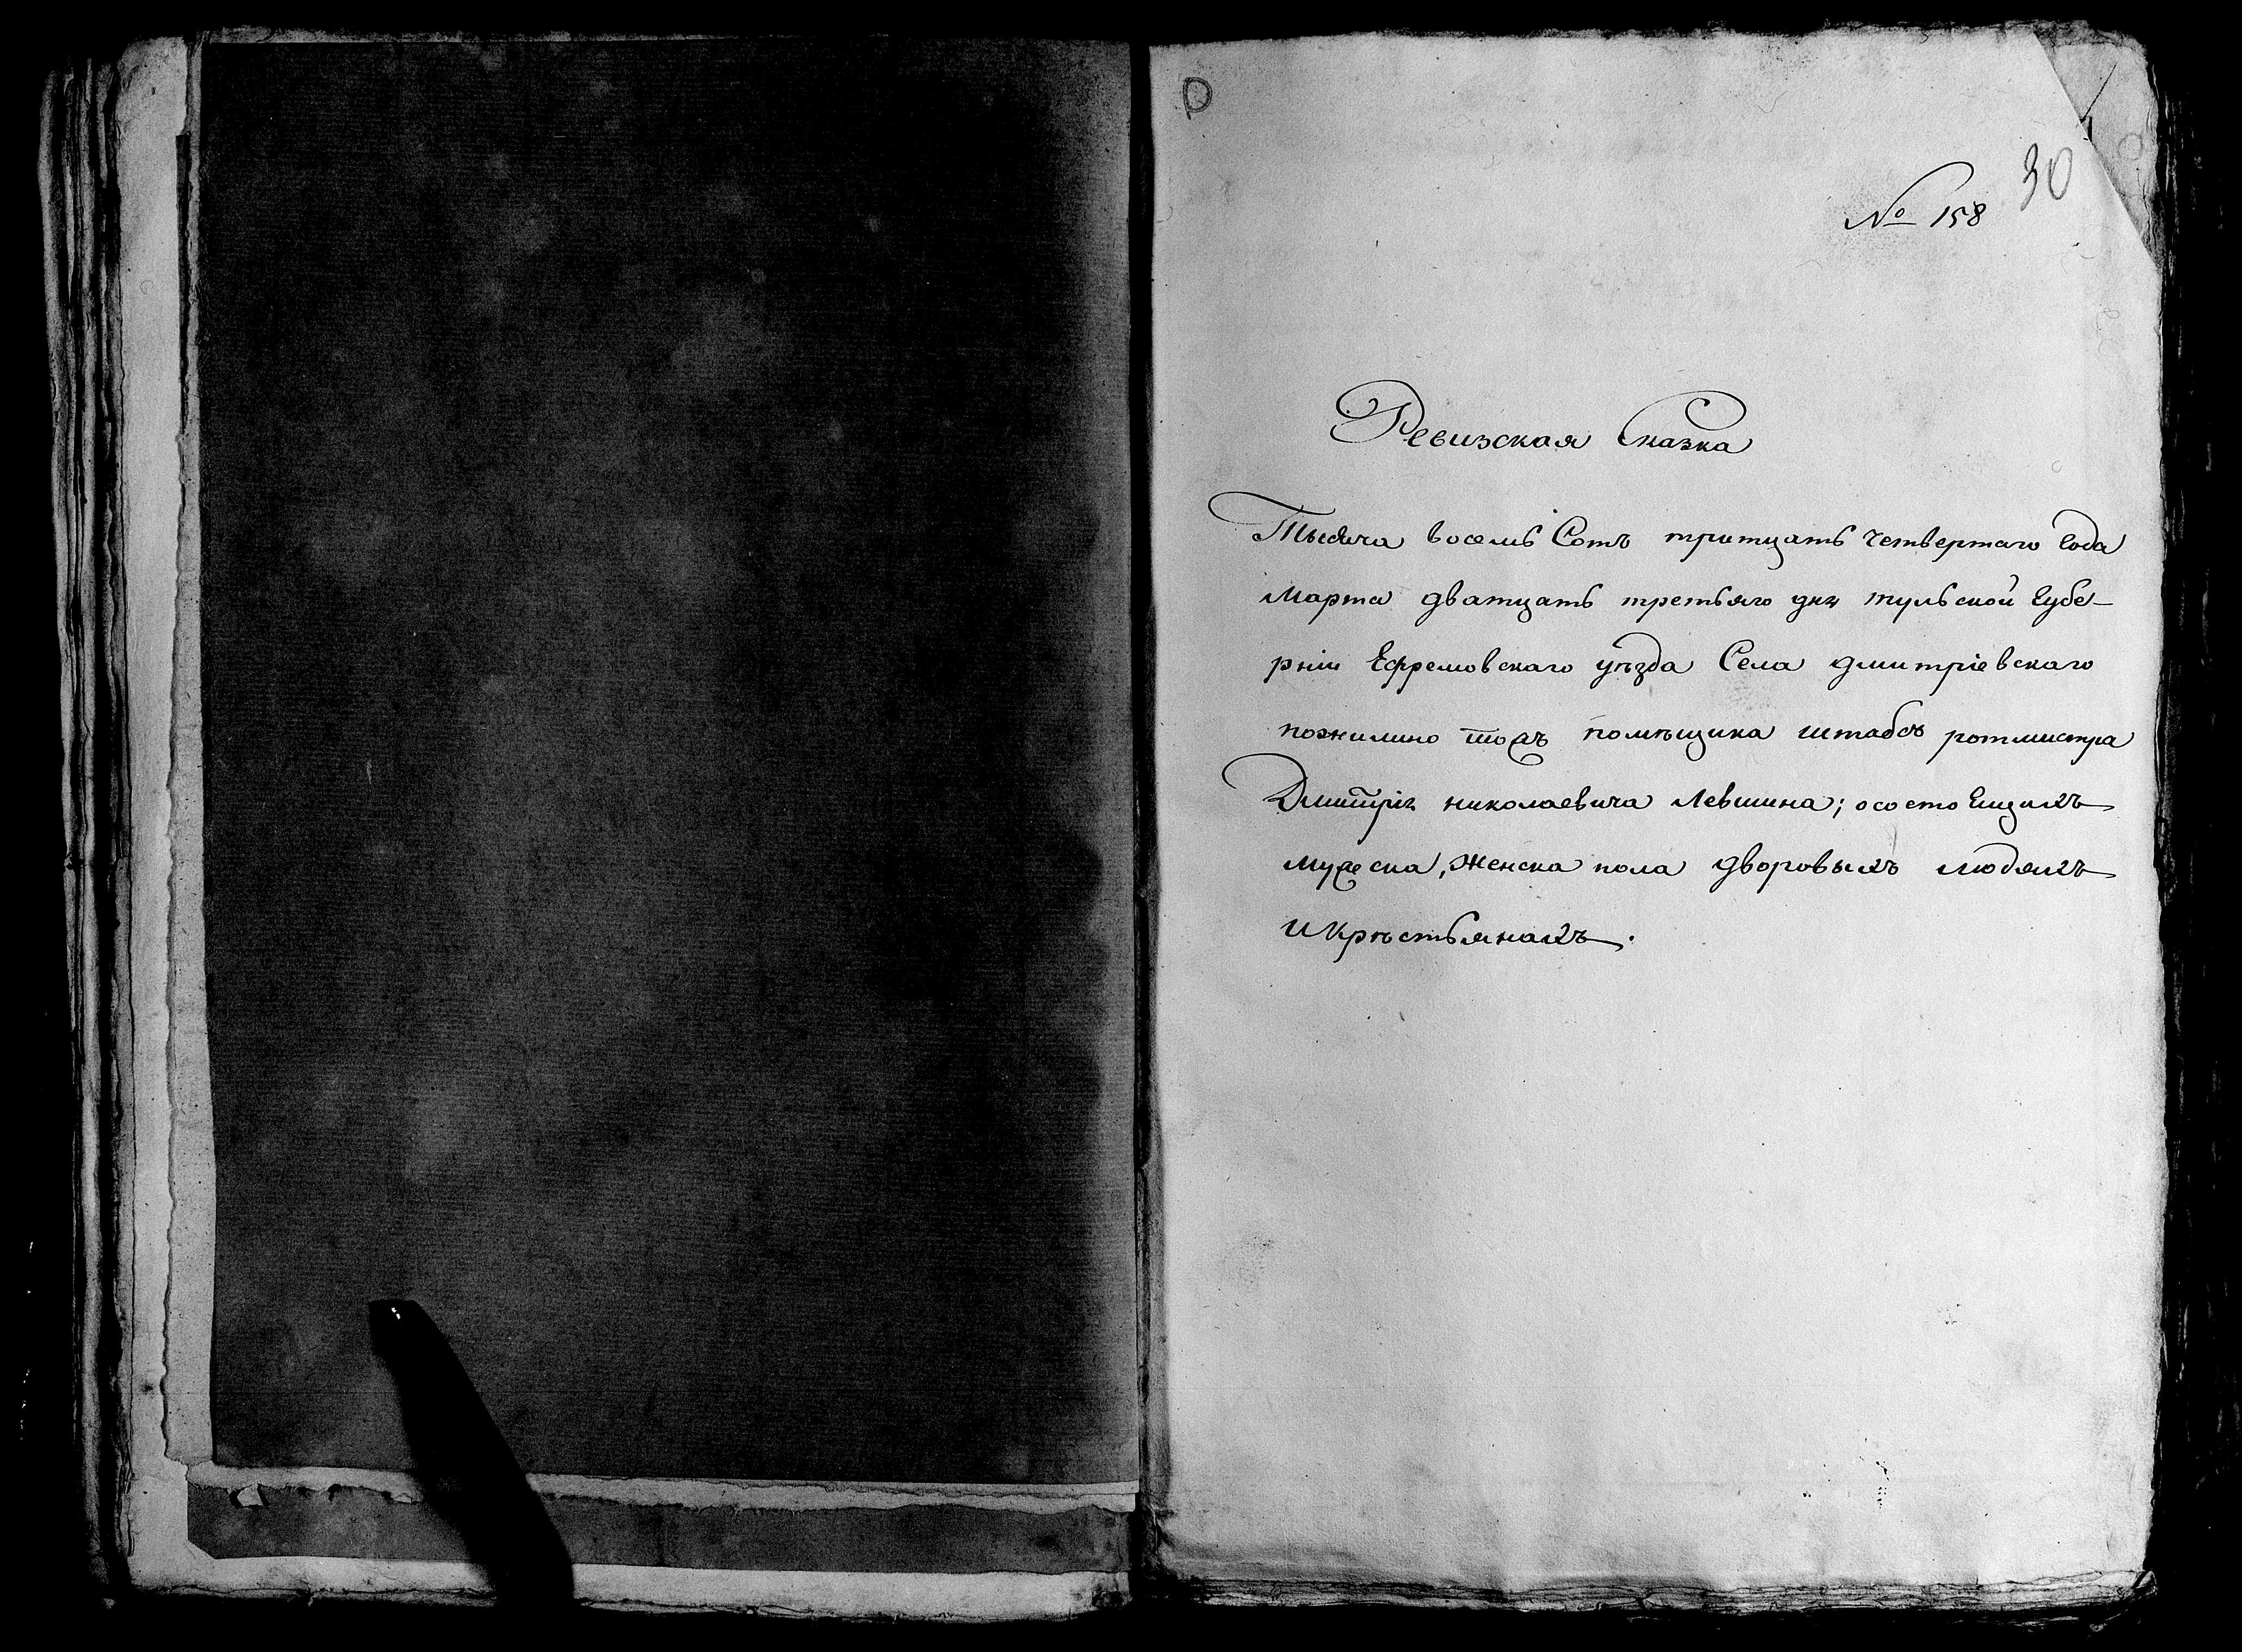 30
№ 158
Ревизская Сказка
Тысяча восемь Сотъ тритцать четвертаго Года
Марта дватцать третьяго дня тульской Губе-
рніи Ефремовскаго уѣзда Села дмитріевскаго
пожилино тожъ помѣщика штабсъ ротмистра
Дмитрія николаевича Левшина; осостоещихъ
мужеска, женска пола дворовыхъ людяхъ
и крѣстьянахъ.